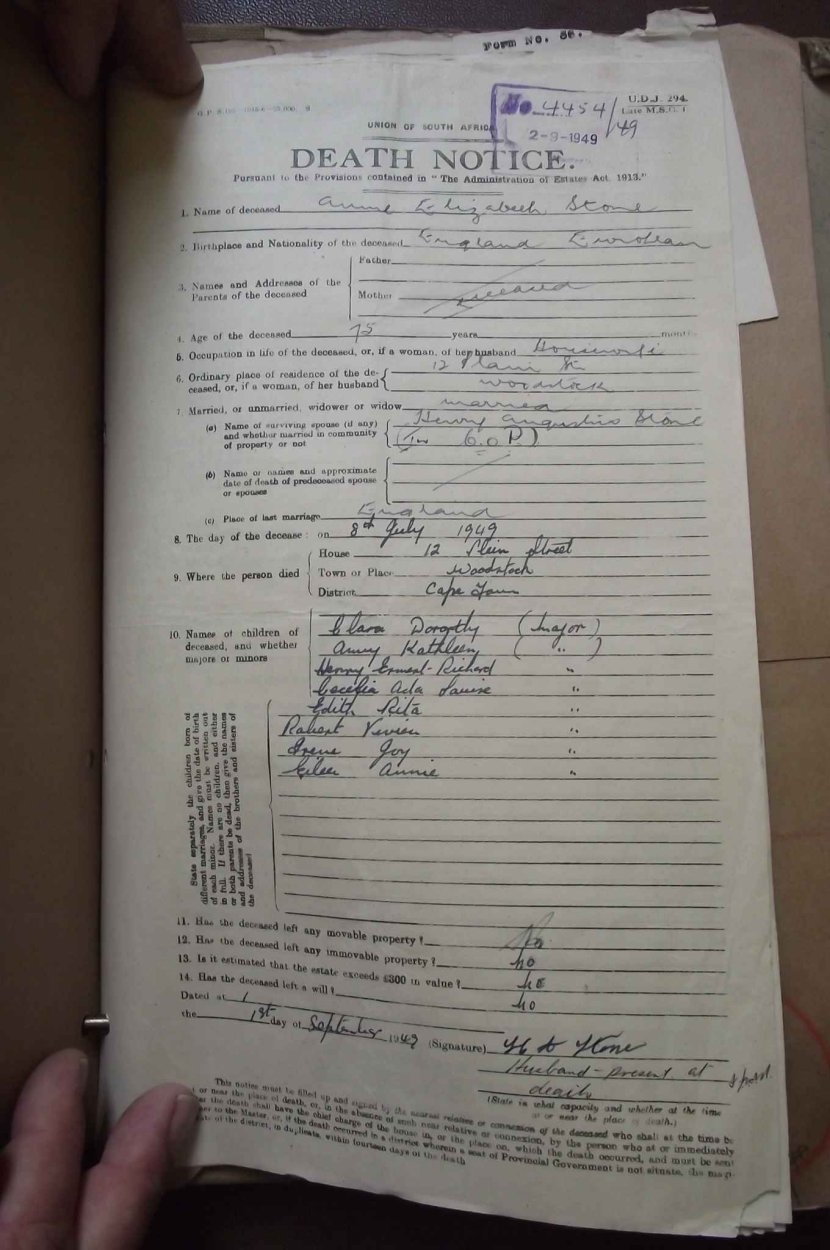 Form No. 56.
U.D.J. 294.
Late M.S.C. 1
No. 4454/49
2-9-1949
UNION OF SOUTH AFRICA
DEATH NOTICE.
Pursuant to the Provisions contained in "The Administration of Estates Act, 1913."
1. Name of deceased Annie Elizabeth Stone
2. Birthplace and Nationality of the deceased England European
3. Names and Addresses of the Parents of the deceased
Father
Mother deceased
4. Age of the deceased 75 years months
5. Occupation in life of the deceased, or, if a woman, of her husband Housewife
6. Ordinary place of residence of the deceased, or, if a woman, of her husband
12 Plein St
Woodstock
7. Married, or unmarried, widower or widow married
(a) Name of surviving spouse (if any) and whether married in community of property or not
Henry Augustus Stone
(In C.O.P.)
(b) Name or names and approximate date of death of predeceased spouse or spouses
(c) Place of last marriage England
8. The day of the decease: on 8th July 1949
9. Where the person died
House 12 Plein Street
Town or Place Woodstock
District Cape Town
10. Names of children of deceased, and whether majors or minors
Clara Dorothy (major)
Amy Kathleen ( " )
Henry Ernest Richard "
Cecelia Ada Louise "
Edith Rita "
Robert Vivien "
Irene Joy "
Eileen Annie "
State separately the children born of
different marriages, and give the date of birth
of each minor. Names must be written out
in full. If there are no children, and either
or both parents be dead, then give the names
and addresses of the brothers and sisters of
the deceased
11. Has the deceased left any movable property? No
12. Has the deceased left any immovable property? no
13. Is it estimated that the estate exceeds £300 in value? no
14. Has the deceased left a will? no
Dated at
the 1st day of September 1949 (Signature) H A Stone
Husband - present at
death
(State in what capacity and whether at the time
at or near the place of death.)
This notice must be filled up and signed by the nearest relative or connexion of the deceased who shall at the time be
or near the place of death, or, in the absence of such near relative or connexion, by the person who at or immediately
the death shall have the chief charge of the house in, or the place on, which the death occurred, and must be sent
to the Master, or, if the death occurred in a district wherein a seat of Provincial Government is not situate, the
of the district, in duplicate, within fourteen days of the death